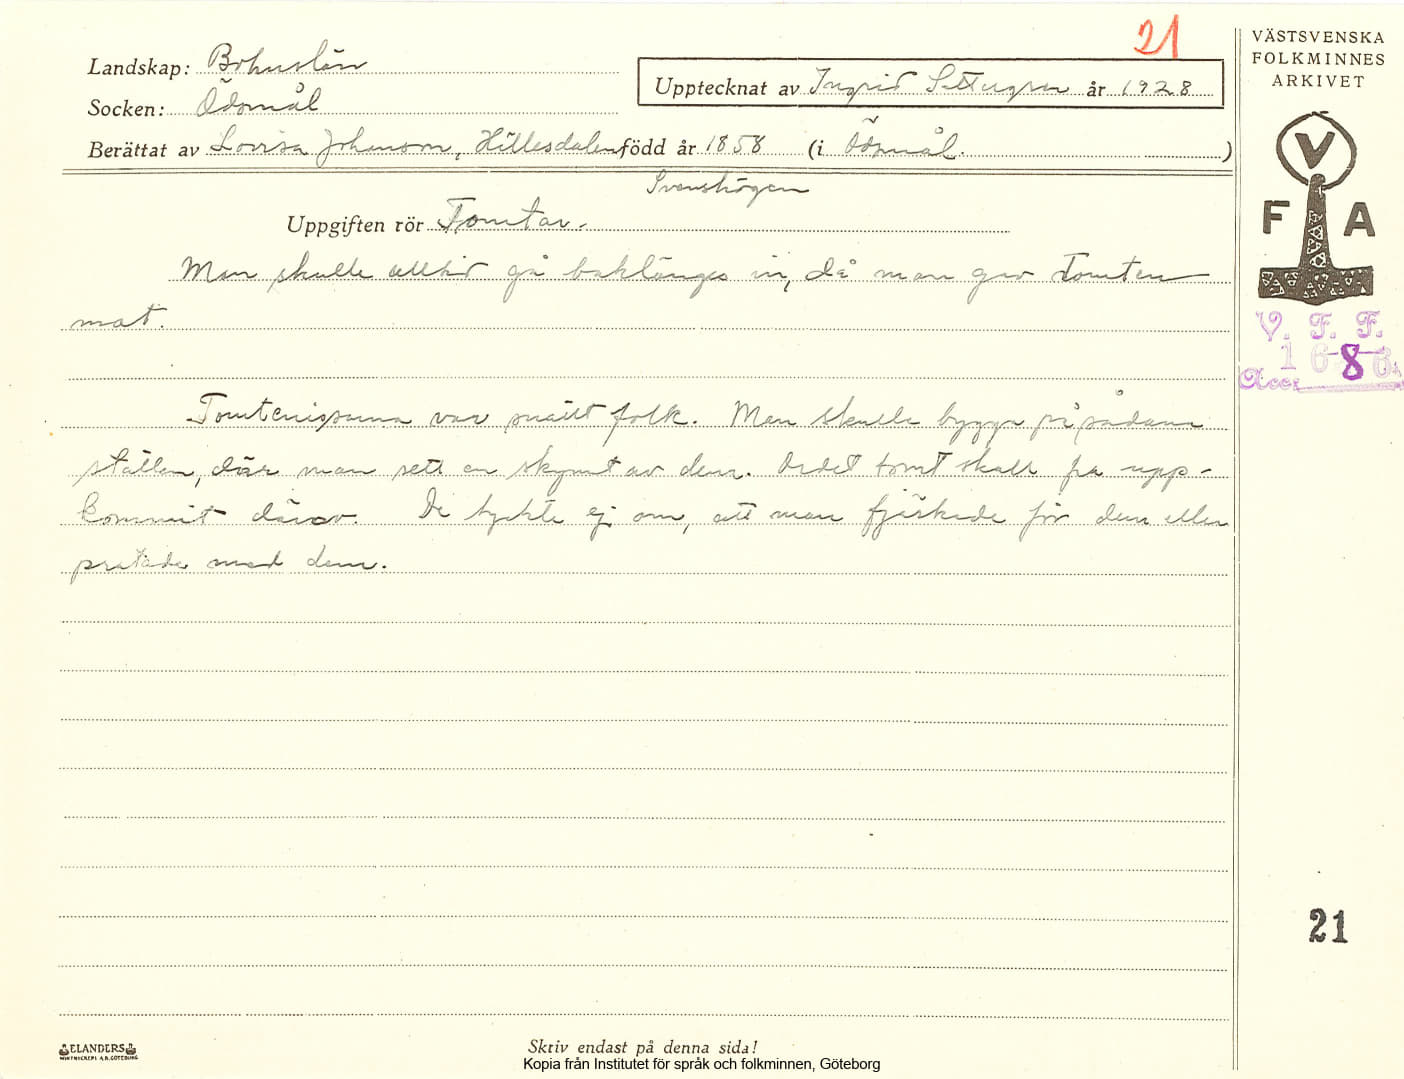 21
VÄSTSVENSKA
FOLKMINNES
ARKIVET
Landskap: Bohuslän
Upptecknat av Ingrid år 1928
Socken: Ödsmål
Berättat av Lovisa Johansson, Hillesdalen född år 1858 (i Ödsmål.)
Svenshögen
Uppgiften rör Tomtar.
V
F A
Man skulle alltid gå baklänges in, då man gav Tomten
mat.
V. F. F.
1686
Acc.
Tomtenissarna var smått folk. Man skulle bygga på sådana
ställen, där man sett en skymt av dem. Ordet tomt skall ha upp-
kommit därav. De tyckte ej om, att man fjäskade för dem eller
pratade med dem.
21
ELANDERS
Skriv endast på denna sida!
Kopia från Institutet för språk och folkminnen, Göteborg